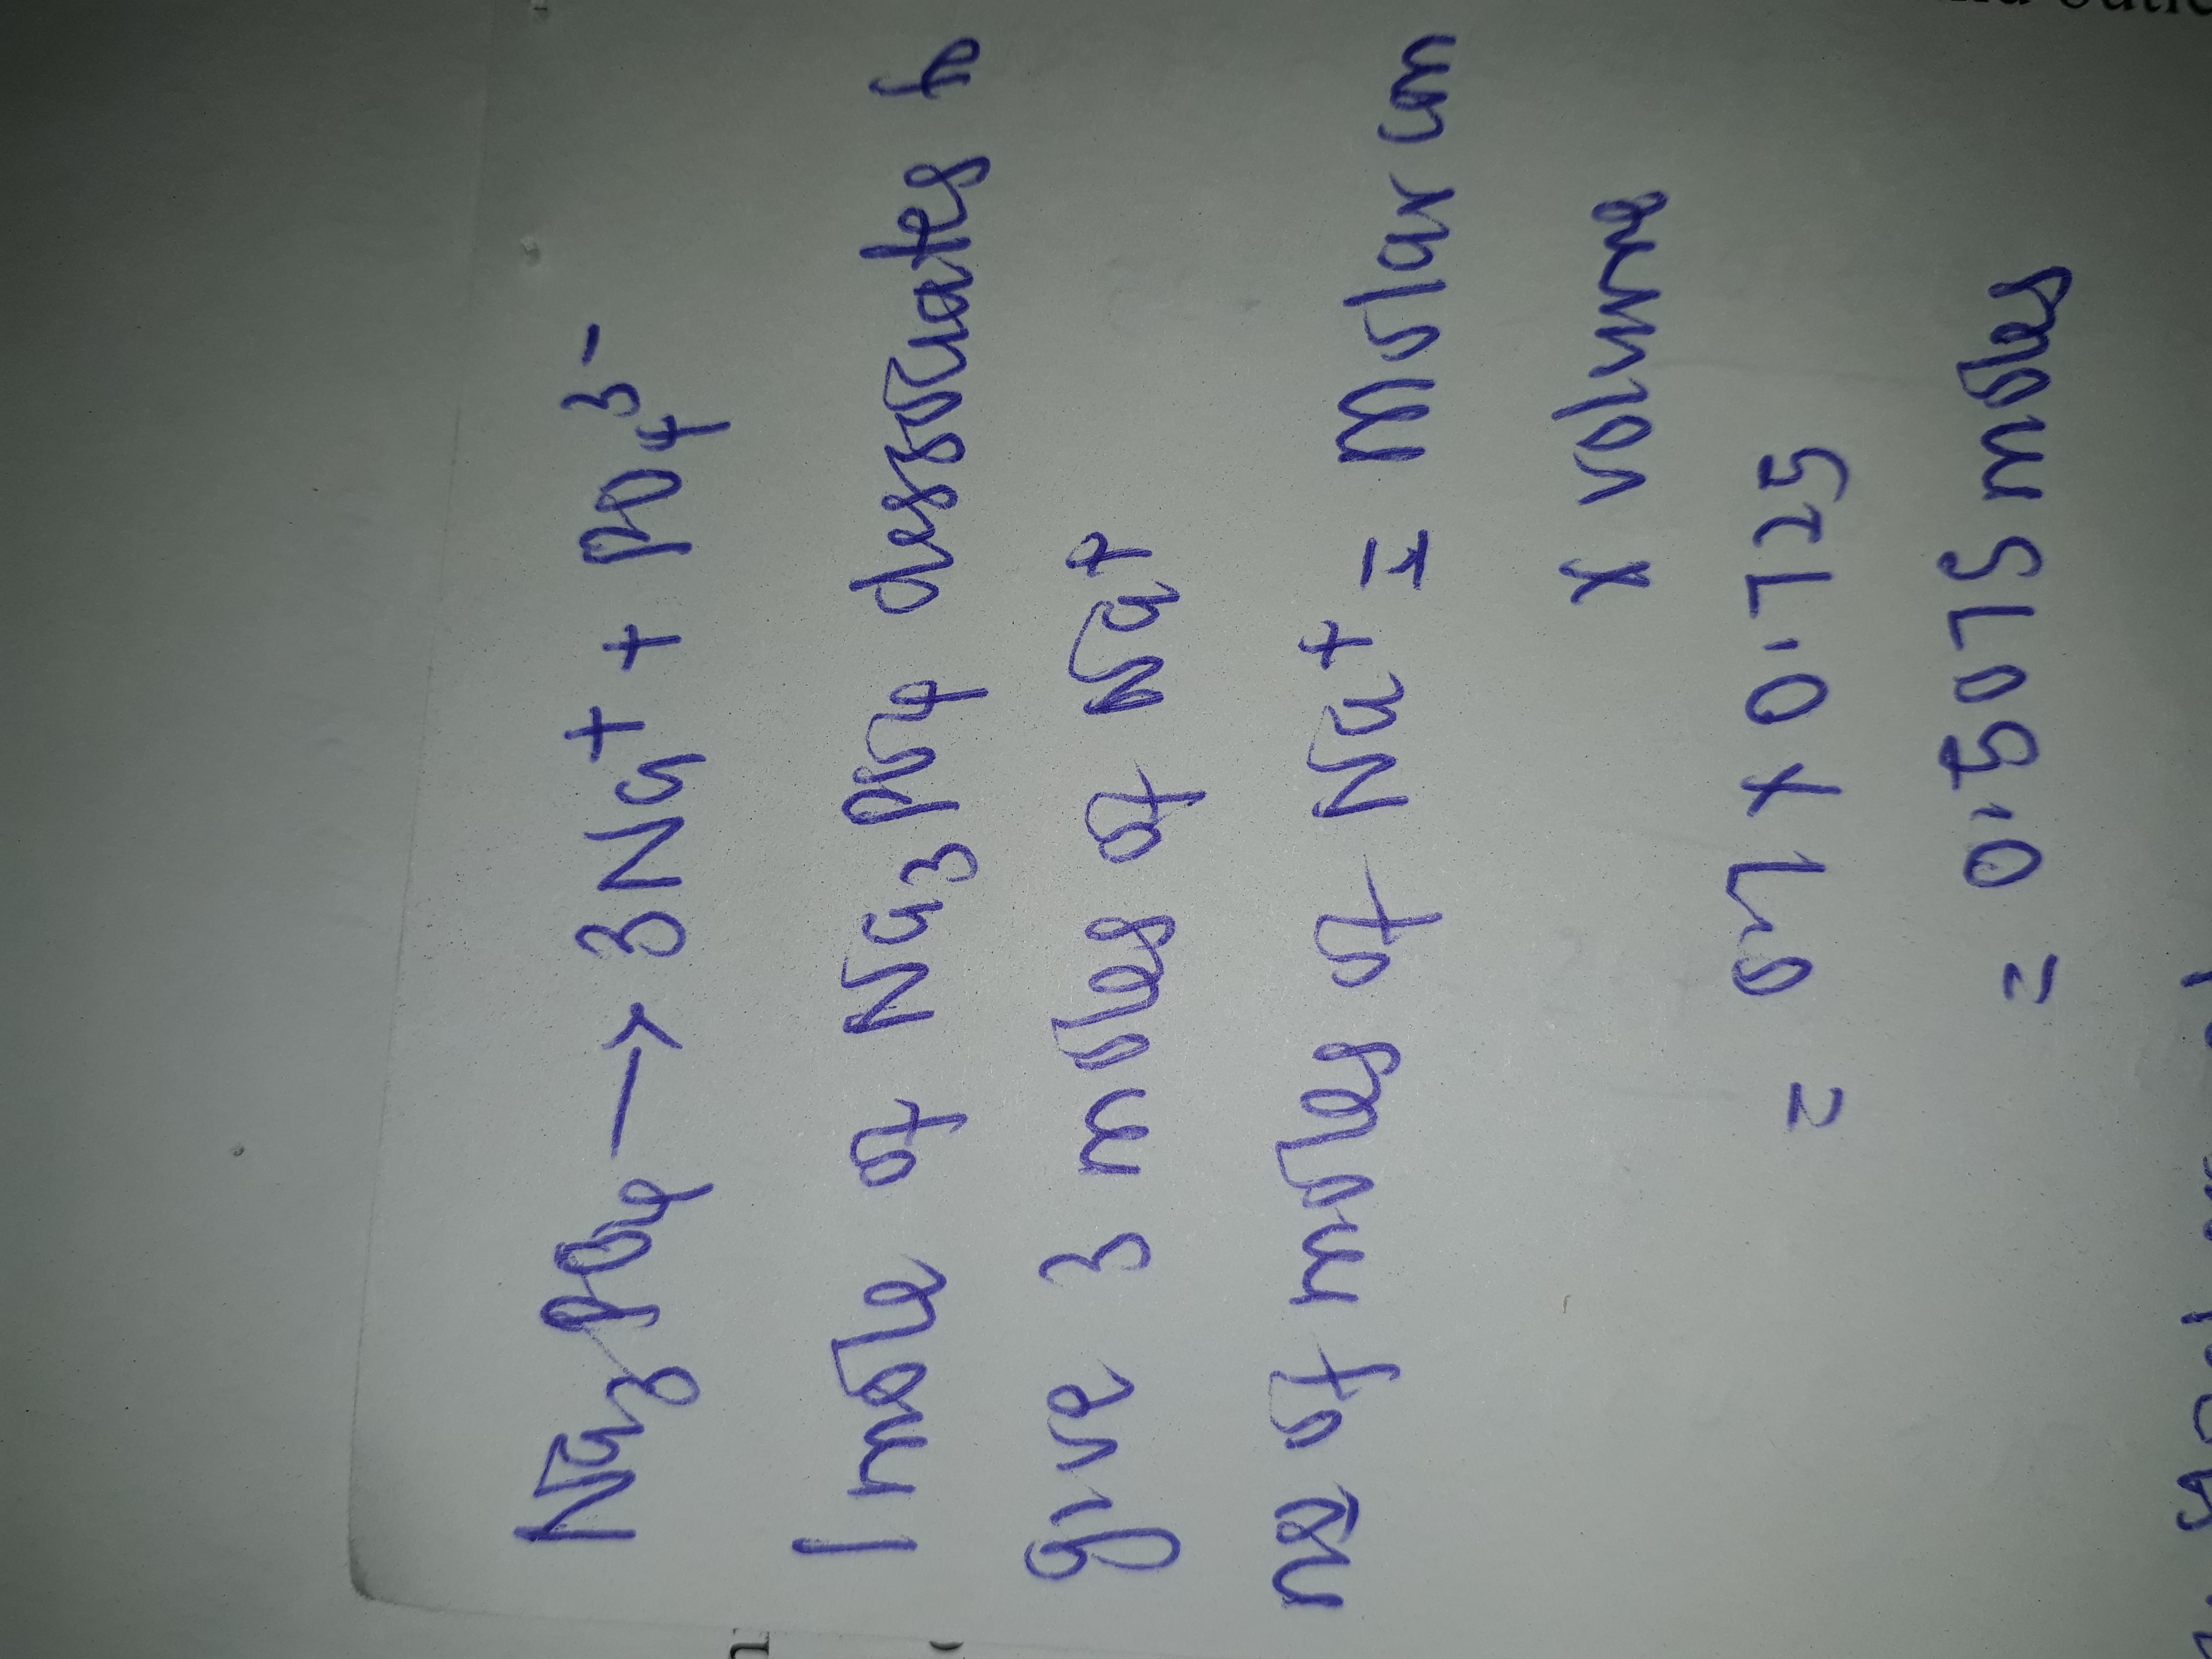 Na₃PO₄ → 3Na⁺ + PO₄³⁻
1 mole of Na₃PO₄ dissociates to
give 3 moles of Na⁺
no of moles of Na⁺ = Molar
x volume
= 07 x 0.725
= 0.5075 moles